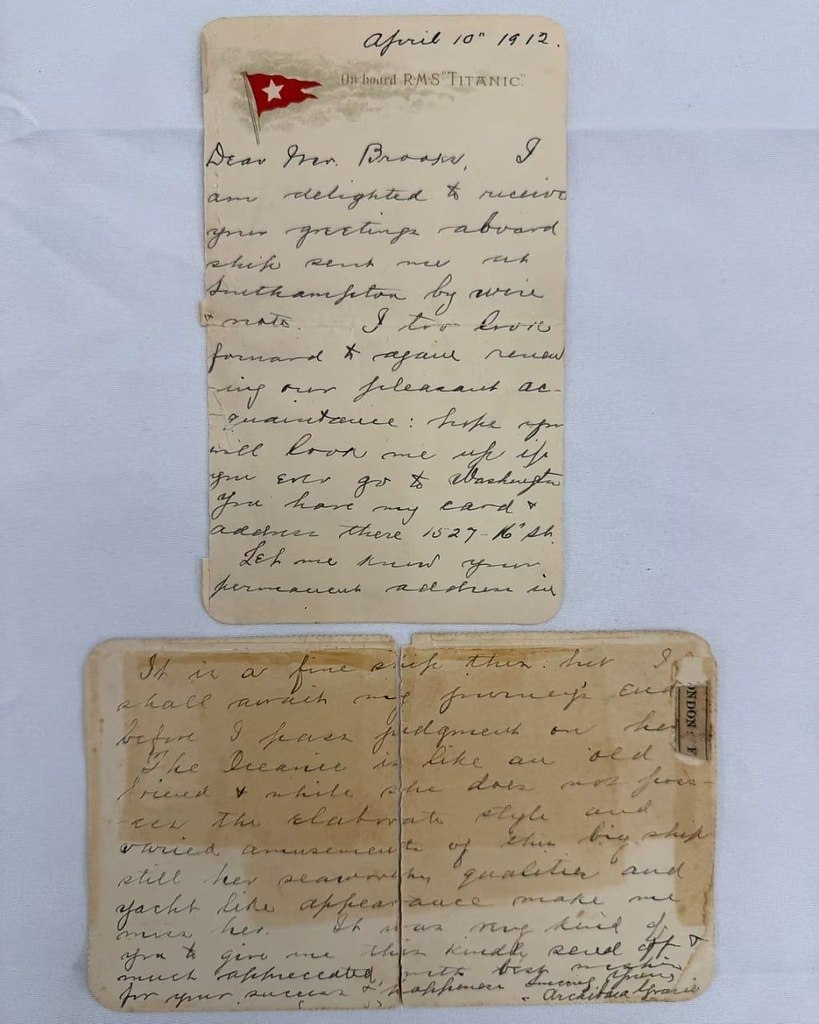 April 10" 1912.
On board R.M.S "TITANIC."
Dear Mr. Brooks, I
am delighted to receive
your greetings aboard
ship sent me at
Southampton by wire
& note. I too look
forward to again renew
ing our pleasant ac-
quaintance: hope you
will look me up if
you ever go to Washington
You have my card &
address there 1527-16" St.
Let me know your
permanent address in
It is a fine ship this but I
shall await my journey's end
before I pass judgment on her
The Oceanic is like an old
friend & while she does not poss-
ess the elaborate style and
varied amusements of this big ship
still her seaworthy qualities and
yacht like appearance make me
miss her. It was very kind of
you to give me this kindly send off &
much appreciated, with best wishes
for your success & happiness Sincerely yours,
Archibald Gracie
ONDON